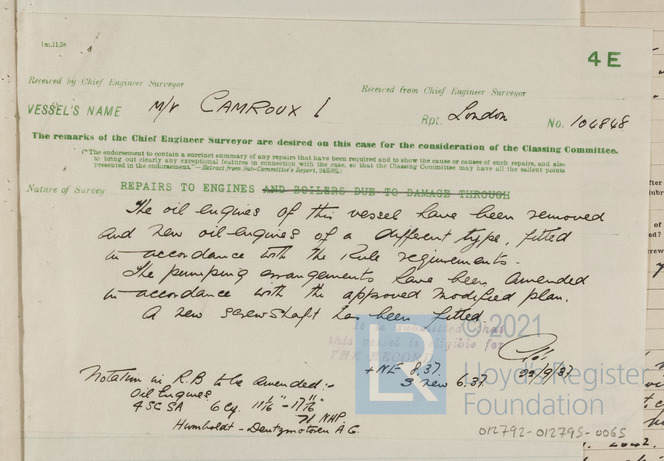 1m,11,3e.
4E
Received by Chief Engineer Surveyor
Received from Chief Engineer Surveyor
VESSEL'S NAME M/V CAMROUX I Rpt. London No. 104848
The remarks of the Chief Engineer Surveyor are desired on this case for the consideration of the Classing Committee.
("The endorsement to contain a succinct summary of any repairs that have been required and to show the cause or causes of such repairs, and also
to bring out clearly any exceptional features in connection with the case, so that the Classing Committee may have all the salient points
presented in the endorsement."—Extract from Sub-Committee's Report,
Nature of Survey REPAIRS TO ENGINES AND BOILERS DUE TO DAMAGE THROUGH
The oil engines of this vessel have been removed
and new oil engines of a different type, fitted
in accordance with the Rule requirements.
The pumping arrangements have been amended
in accordance with the approved modified plan.
A new screwshaft has been fitted.
this vessel is eligible for
THE RECORD
+NE 8.37.
S new 6.37.
22/9/37
Notation in R.B to be amended:-
Oil Engines
4SCSA 6 Cy. 11
NHP
Humboldt - Deutzmotoren A.G.
© 2021
LR
Lloyd's Register
Foundation
012792-012795-0065